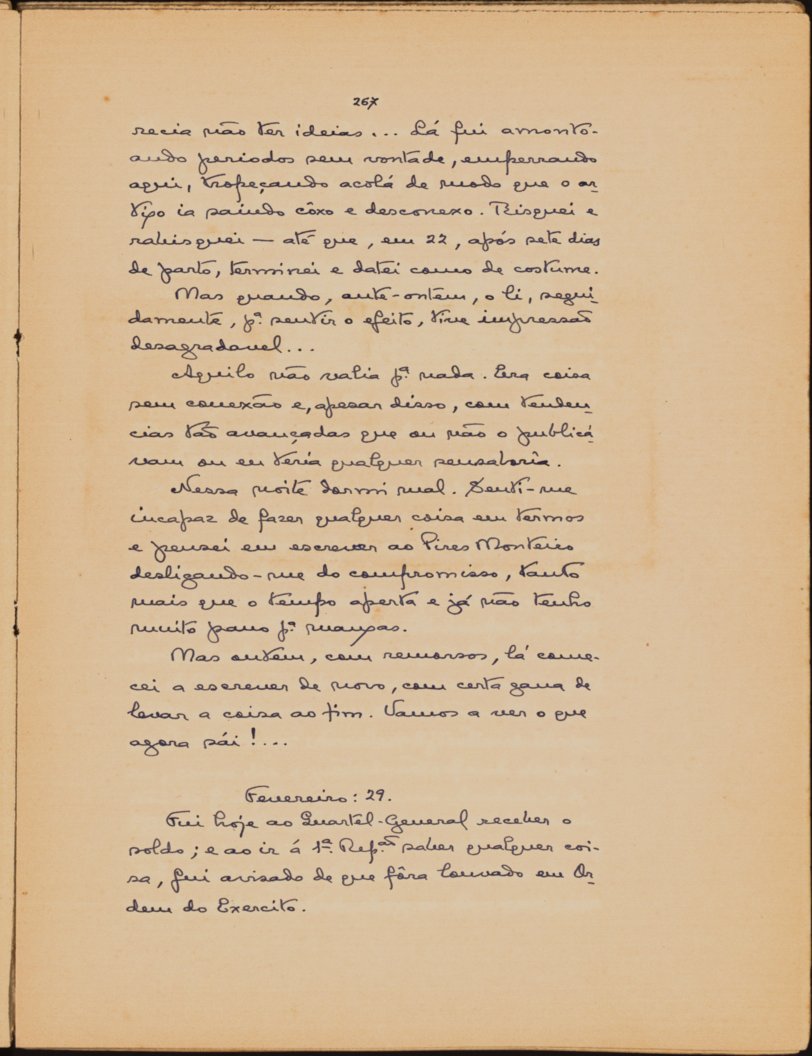 267
recia não ter ideias... Lá fui amonto-
ando periodos sem vontade, emperrando
aqui, tropeçando acolá de modo que o ar-
tigo ia saindo côxo e desconexo. Risquei e
rabisquei — até que, em 22, após sete dias
de parto, terminei e datei como de costume.
Mas quando, ante-ontem, o li, segui-
damente, pª. sentir o efeito, tive impressão
desagradavel...
Aquilo não valia pª. nada. Era coisa
sem conexão e, apesar disso, com tenden-
cias tão avançadas que ou não o publicá-
vam ou eu teria qualquer sensaboria.
Nessa noite dormi mal. Senti-me
incapaz de fazer qualquer coisa em termos
e pensei em escrever ao Pires Monteiro
desligando-me do compromisso, tanto
mais que o tempo aperta e já não tenho
muito pano pª. mangas.
Mas ontem, com remorsos, lá come-
cei a escrever de novo, com certa gana de
levar a coisa ao fim. Vamos a ver o que
agora sái!...
Fevereiro: 29.
Fui hoje ao Quartel-General receber o
soldo; e ao ir á 1ª. Rep.ão saber qualquer coi-
sa, fui avisado de que fôra louvado em Or-
dem do Exercito.